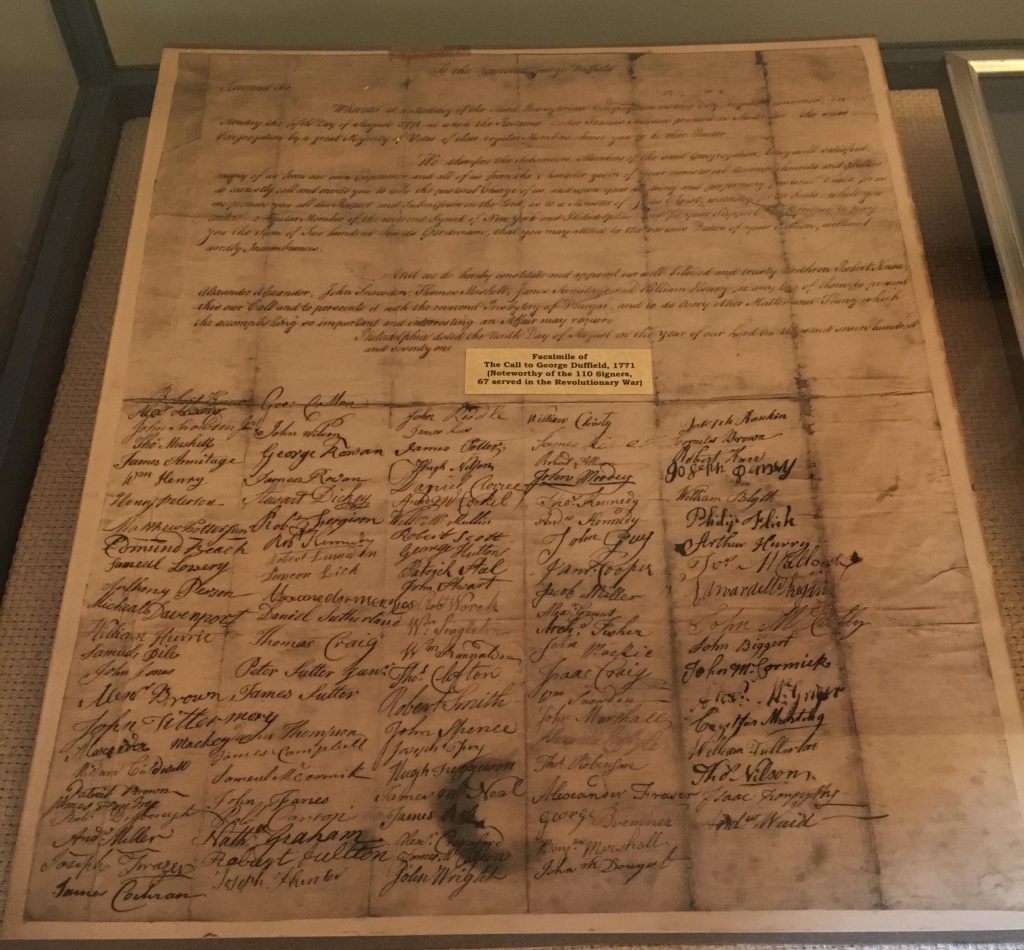 To the Reverend George Duffield
Reverend Sir
Whereas at a Meeting of the Presbyterian Congregation in this City regularly convened, on
Monday the fifth Day of August 1771, at which the Reverend presided as Moderator the
Congregation by a great Majority of Votes of their regular Members chose you to be their Pastor
We therefore the Subscribers Members of the said Congregation, being well satisfied
many of us from our own Experience and all of us from the Character given of your ministerial Accomplishments and Abilities
do earnestly call and invite you to take the pastoral Charge of us and upon your and performing Pastoral Duties to us
we promise you all due Respect and Submission in the Lord, as to a Minister of Jesus Christ, watching for our Souls while you
continue a regular Member of the reverend Synod of New York and Philadelphia for your Support to pay
you the Sum of Two hundred Pounds that you may attend to the various Duties of your Station, without
worldly Incumbrances.
And we do hereby constitute and appoint our well beloved and trusty Brethren Robert Knox,
Alexander Alexander, John Snowden, Thomas Maskell, James Armitage and William Henry, or any of them to present
this our Call and to prosecute it with the reverend Presbytery of Donegal, and to do every other Matter and Thing which
the accomplishing so important and interesting an Affair may require.
Philadelphia dated the Ninth Day of August in the Year of our Lord One thousand seven hundred
and seventy one
Facsimile of
The Call to George Duffield, 1771
(Noteworthy of the 110 Signers,
67 served in the Revolutionary War)
Robert Knox
John Snowden
Thos. Maskell
James Armitage
Wm Henry
Henry Peterson
Matthew Potter
Edmund Beach
Samuel Lowery
Anthony Person
Michael Davenport
William Hurrie
Samuel Bile
John Jones
Alexr. Brown
John Fittermory
Alexander Mackey
William Caldwell
Patrick Brown
Andw Miller
Joseph Frazer
James Cochran
Geo:
John Wilson
George Rowan
James Rowan
Stewart Dickey
Robt. Ferguson
Robt Kennedy
Simeon Lick
Alexander Menzies
Daniel Sutherland
Thomas Craig
Peter Sutter Junr.
James Sutter
John Thompson
James Campbell
Samuel McCormik
John Faries
Nathl Graham
Robert Fullton
Joseph Hunter
John Riddle
James Lee
James Potter
Hugh Nelson
Daniel
Willm McMullin
Robert Scott
George Hutton
Patrick Hal
John Stuart
Rob Work
Wm. Singleton
Wm
Thos. Clifton
Robert Smith
John Spence
Joseph Fry
Hugh Ferguson
James O Neal
James
Alexr. Crawford
John Wright
William Christy
James
Robert
John Moodey
Thos. Kennedy
Andw Kennedy
John Guy
Jam Cooper
Jacob Miller
Alexr. Grant
Archd. Fisher
John Mackie
Isaac Craig
Wm Snowden
John Marshall
Thos Robinson
Alexander Frazer
George Bremner
Benjn Marshall
John McDougal
Joseph Rankin
Cornelus Brown
Robert Karr
Joseph
William Blyth
Philip Flick
Arthur Hurry
Jos. McCalloch
Edward
John McCalley
John Biggert
John McCormick
Alexr. McGrigor
William Fullerton
Thos Nilson
Isaac Forsyths
Andw Waid